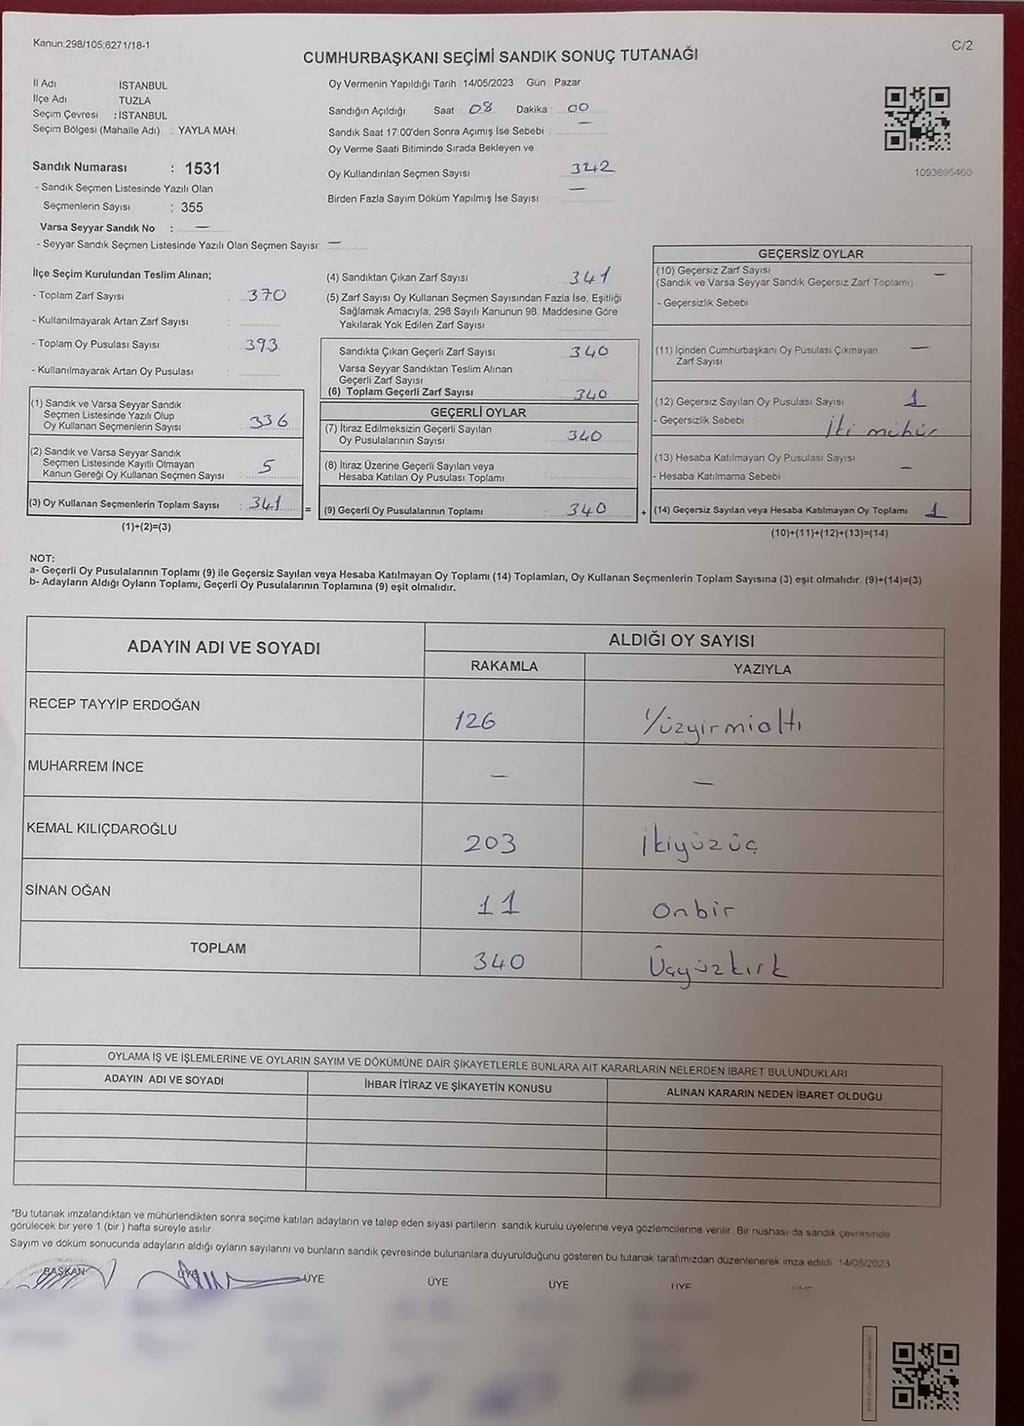 Kanun:298/105;6271/18-1
C/2
CUMHURBAŞKANI SEÇİMİ SANDIK SONUÇ TUTANAĞI
İl Adı : İSTANBUL
İlçe Adı : TUZLA
Seçim Çevresi : İSTANBUL
Seçim Bölgesi (Mahalle Adı) : YAYLA MAH.
Sandık Numarası : 1531
- Sandık Seçmen Listesinde Yazılı Olan
Seçmenlerin Sayısı : 355
Varsa Seyyar Sandık No : —
- Seyyar Sandık Seçmen Listesinde Yazılı Olan Seçmen Sayısı: —
Oy Vermenin Yapıldığı Tarih : 14/05/2023 Gün : Pazar
Sandığın Açıldığı Saat : 08 Dakika : 00
Sandık Saat 17.00'den Sonra Açımış İse Sebebi : —
Oy Verme Saati Bitiminde Sırada Bekleyen ve
Oy Kullandırılan Seçmen Sayısı : 342
Birden Fazla Sayım Döküm Yapılmış İse Sayısı : —
1093695460
İlçe Seçim Kurulundan Teslim Alınan;
- Toplam Zarf Sayısı : 370
- Kullanılmayarak Artan Zarf Sayısı :
- Toplam Oy Pusulası Sayısı : 393
- Kullanılmayarak Artan Oy Pusulası :
(1) Sandık ve Varsa Seyyar Sandık
Seçmen Listesinde Yazılı Olup
Oy Kullanan Seçmenlerin Sayısı : 336
(2) Sandık ve Varsa Seyyar Sandık
Seçmen Listesinde Kayıtlı Olmayan
Kanun Gereği Oy Kullanan Seçmen Sayısı : 5
(3) Oy Kullanan Seçmenlerin Toplam Sayısı : 341 =
(1)+(2)=(3)
(4) Sandıktan Çıkan Zarf Sayısı : 341
(5) Zarf Sayısı Oy Kullanan Seçmen Sayısından Fazla İse, Eşitliği
Sağlamak Amacıyla; 298 Sayılı Kanunun 98. Maddesine Göre
Yakılarak Yok Edilen Zarf Sayısı :
Sandıkta Çıkan Geçerli Zarf Sayısı : 340
Varsa Seyyar Sandıktan Teslim Alınan
Geçerli Zarf Sayısı
(6) Toplam Geçerli Zarf Sayısı : 340
GEÇERLİ OYLAR
(7) İtiraz Edilmeksizin Geçerli Sayılan
Oy Pusulalarının Sayısı : 340
(8) İtiraz Üzerine Geçerli Sayılan veya
Hesaba Katılan Oy Pusulası Toplamı :
(9) Geçerli Oy Pusulalarının Toplamı : 340 +
GEÇERSİZ OYLAR
(10) Geçersiz Zarf Sayısı —
(Sandık ve Varsa Seyyar Sandık Geçersiz Zarf Toplamı)
- Geçersizlik Sebebi
(11) İçinden Cumhurbaşkanı Oy Pusulası Çıkmayan —
Zarf Sayısı
(12) Geçersiz Sayılan Oy Pusulası Sayısı 1
- Geçersizlik Sebebi İki mühür
(13) Hesaba Katılmayan Oy Pusulası Sayısı —
- Hesaba Katılmama Sebebi
(14) Geçersiz Sayılan veya Hesaba Katılmayan Oy Toplamı 1
(10)+(11)+(12)+(13)=(14)
NOT:
a- Geçerli Oy Pusulalarının Toplamı (9) ile Geçersiz Sayılan veya Hesaba Katılmayan Oy Toplamı (14) Toplamları, Oy Kullanan Seçmenlerin Toplam Sayısına (3) eşit olmalıdır. (9)+(14)=(3)
b- Adayların Aldığı Oyların Toplamı, Geçerli Oy Pusulalarının Toplamına (9) eşit olmalıdır.
ADAYIN ADI VE SOYADI
ALDIĞI OY SAYISI
RAKAMLA YAZIYLA
RECEP TAYYİP ERDOĞAN 126 Yüzyirmialtı
MUHARREM İNCE — —
KEMAL KILIÇDAROĞLU 203 İkiyüzüç
SİNAN OĞAN 11 onbir
TOPLAM 340 Üçyüzkırk
OYLAMA İŞ VE İŞLEMLERİNE VE OYLARIN SAYIM VE DÖKÜMÜNE DAİR ŞİKAYETLERLE BUNLARA AİT KARARLARIN NELERDEN İBARET BULUNDUKLARI
ADAYIN ADI VE SOYADI İHBAR İTİRAZ VE ŞİKAYETİN KONUSU ALINAN KARARIN NEDEN İBARET OLDUĞU
*Bu tutanak imzalandıktan ve mühürlendikten sonra seçime katılan adayların ve talep eden siyasi partilerin sandık kurulu üyelerine veya gözlemcilerine verilir. Bir nushası da sandık çevresinde
görülecek bir yere 1 (bir ) hafta süreyle asılır.
Sayım ve döküm sonucunda adayların aldığı oyların sayılarını ve bunların sandık çevresinde bulunanlara duyurulduğunu gösteren bu tutanak tarafımızdan düzenlenerek imza edildi. 14/05/2023
BAŞKAN ÜYE ÜYE ÜYE ÜYE ÜYE